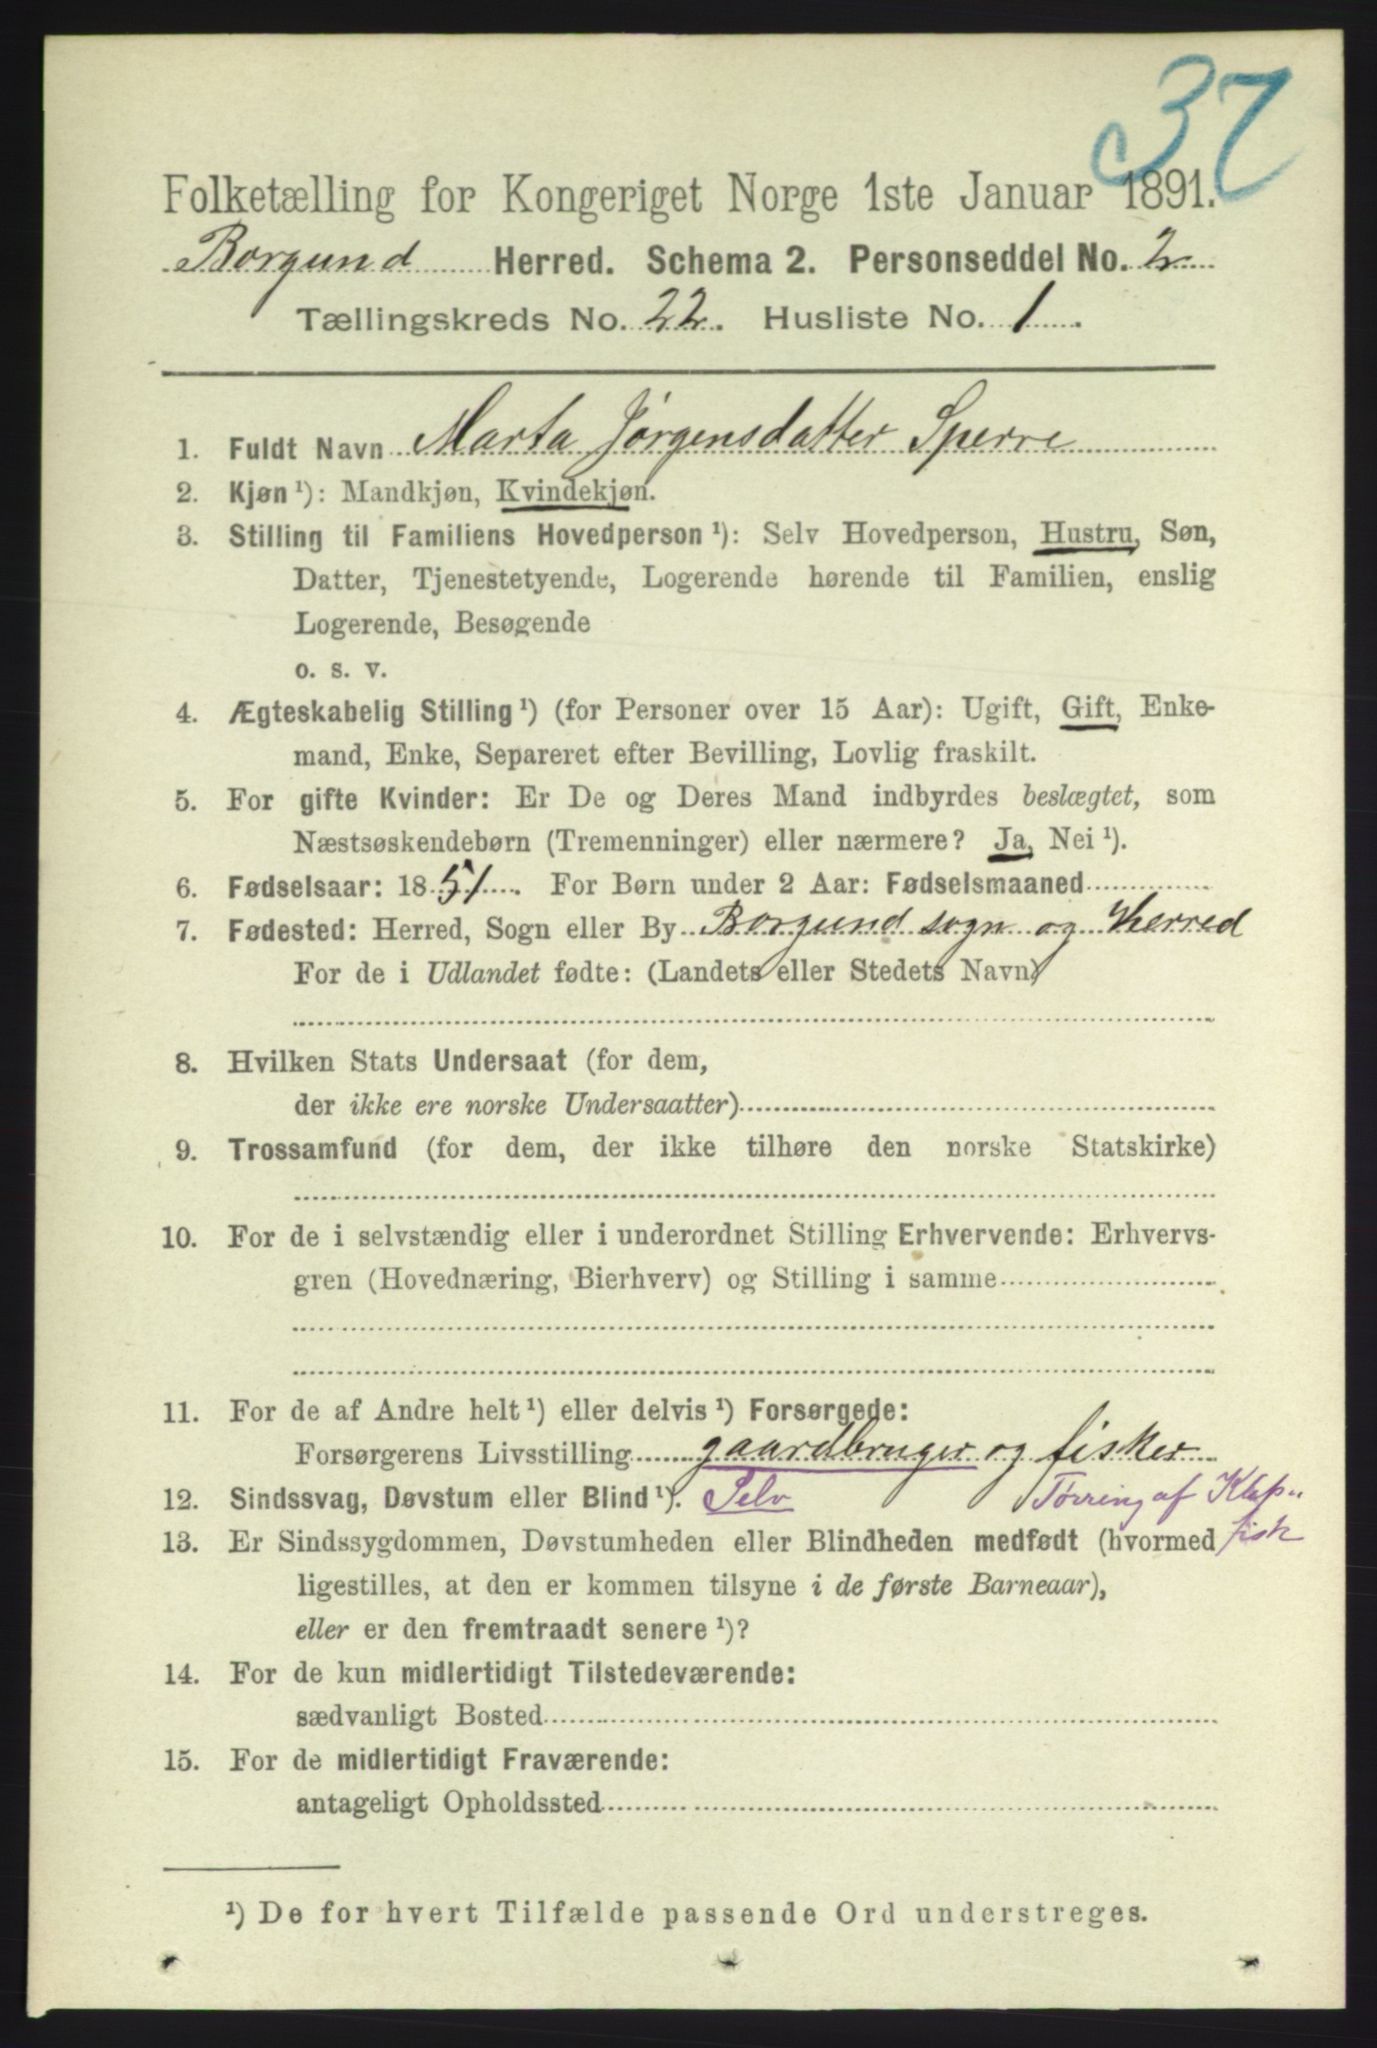 37
Folketælling for Kongeriget Norge 1ste Januar 1891.
Borgund Herred. Schema 2. Personseddel No. 2
Tællingskreds No. 22. Husliste No. 1.
1. Fuldt Navn Marta Jørgensdatter Sperre
2. Kjøn ¹): Mandkjøn, Kvindekjøn.
3. Stilling til Familiens Hovedperson ¹): Selv Hovedperson, Hustru, Søn,
Datter, Tjenestetyende, Logerende hørende til Familien, enslig
Logerende, Besøgende
o. s. v.
4. Ægteskabelig Stilling ¹) (for Personer over 15 Aar): Ugift, Gift, Enke-
mand, Enke, Separeret efter Bevilling, Lovlig fraskilt.
5. For gifte Kvinder: Er De og Deres Mand indbyrdes beslægtet, som
Næstsøskendebørn (Tremenninger) eller nærmere? Ja, Nei ¹).
6. Fødselsaar: 1851. For Børn under 2 Aar: Fødselsmaaned
7. Fødested: Herred, Sogn eller By Borgund sogn og Herred
For de i Udlandet fødte: (Landets eller Stedets Navn)
8. Hvilken Stats Undersaat (for dem,
der ikke ere norske Undersaatter)
9. Trossamfund (for dem, der ikke tilhøre den norske Statskirke)
10. For de i selvstændig eller i underordnet Stilling Erhvervende: Erhvervs-
gren (Hovednæring, Bierhverv) og Stilling i samme
11. For de af Andre helt ¹) eller delvis ¹) Forsørgede:
Forsørgerens Livsstilling gaardbruger og fisker
12. Sindssvag, Døvstum eller Blind ¹). Selv Tørring af Klip-
13. Er Sindssygdommen, Døvstumheden eller Blindheden medfødt (hvormed fisk
ligestilles, at den er kommen tilsyne i de første Barneaar),
eller er den fremtraadt senere ¹)?
14. For de kun midlertidigt Tilstedeværende:
sædvanligt Bosted
15. For de midlertidigt Fraværende:
antageligt Opholdssted
¹) De for hvert Tilfælde passende Ord understreges.